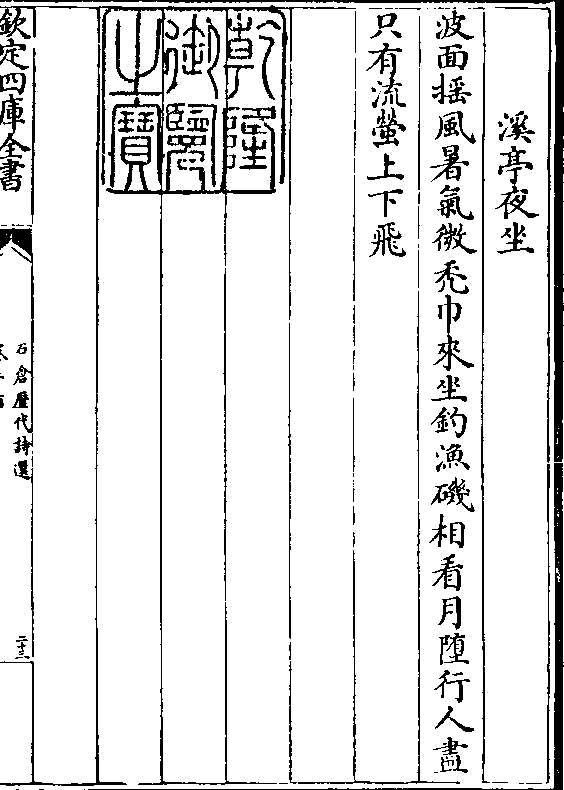 溪亭夜坐
波面揺風暑氣微禿巾來坐釣漁磯相看月墮行人盡
只有流螢上下飛
乾隆
御覽
之寶
欽定四庫全書
石倉歴代詩選
二十三